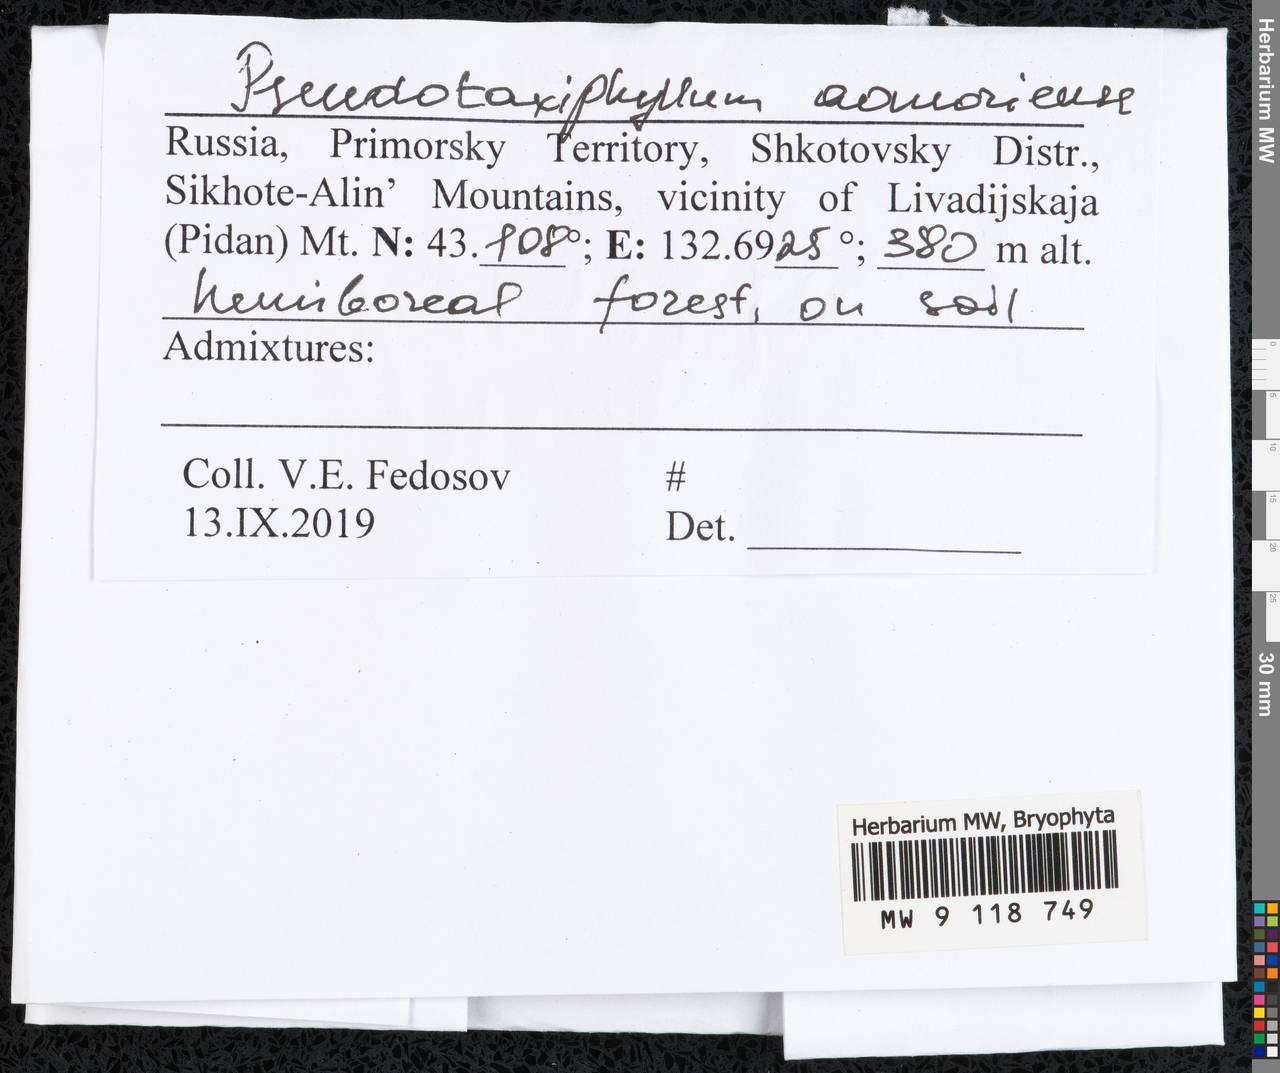 Pseudotaxiphyllum aomoriense
Russia, Primorsky Territory, Shkotovsky Distr.,
Sikhote-Alin’ Mountains, vicinity of Livadijskaja
(Pidan) Mt. N: 43.108°; E: 132.6925°; 380 m alt.
hemiboreal forest, on soil
Admixtures:
Coll. V.E. Fedosov #
13.IX.2019 Det.
Herbarium MW, Bryophyta
MW 9 118 749
Herbarium MW
0
5
10
15
20
25
30 mm